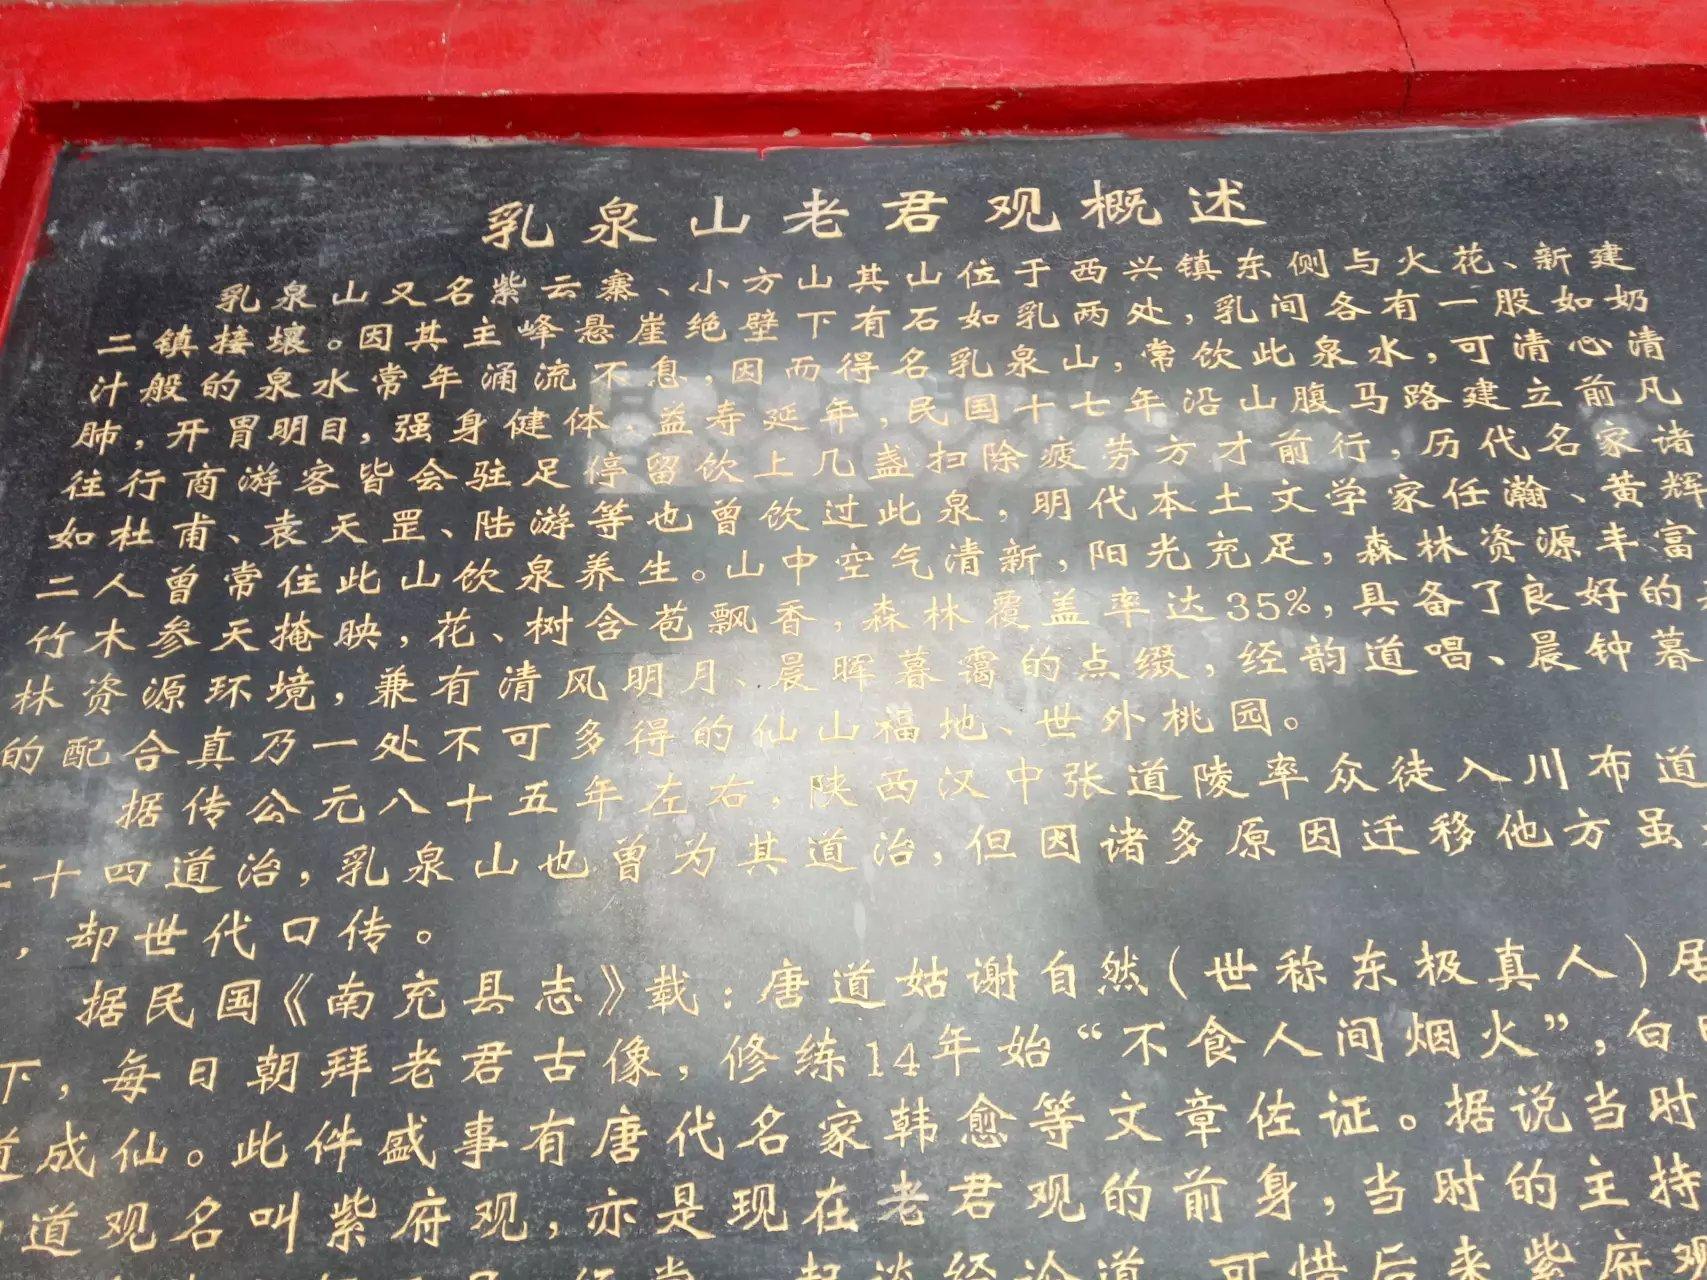 乳泉山老君观概述
乳泉山又名紫云寨、小方山其山位于西兴镇东侧与火花、新建
二镇接壤。因其主峰悬崖绝壁下有石如乳两处，乳间各有一股如奶
汁般的泉水常年涌流不息，因而得名乳泉山，常饮此泉水，可清心清
肺，开胃明目，强身健体，益寿延年，民国十七年沿山腹马路建立前凡
往行商游客皆会驻足停留饮上几盏扫除疲劳方才前行，历代名家诸
如杜甫、袁天罡、陆游等也曾饮过此泉，明代本土文学家任瀚、黄辉
二人曾常住此山饮泉养生。山中空气清新，阳光充足，森林资源丰富
竹木参天掩映，花、树含苞飘香，森林覆盖率达35%，具备了良好的
林资源环境，兼有清风明月、晨晖暮霭的点缀，经韵道唱、晨钟暮
的配合真乃一处不可多得的仙山福地、世外桃园。
据传公元八十五年左右，陕西汉中张道陵率众徒入川布道
二十四道治，乳泉山也曾为其道治，但因诸多原因迁移他方虽
，却世代口传。
据民国《南充县志》载：唐道姑谢自然（世称东极真人）居
下，每日朝拜老君古像，修练14年始“不食人间烟火”，白
道成仙。此件盛事有唐代名家韩愈等文章佐证。据说当时
道观名叫紫府观，亦是现在老君观的前身，当时的主持
经常一起谈经论道，可惜后来紫府观